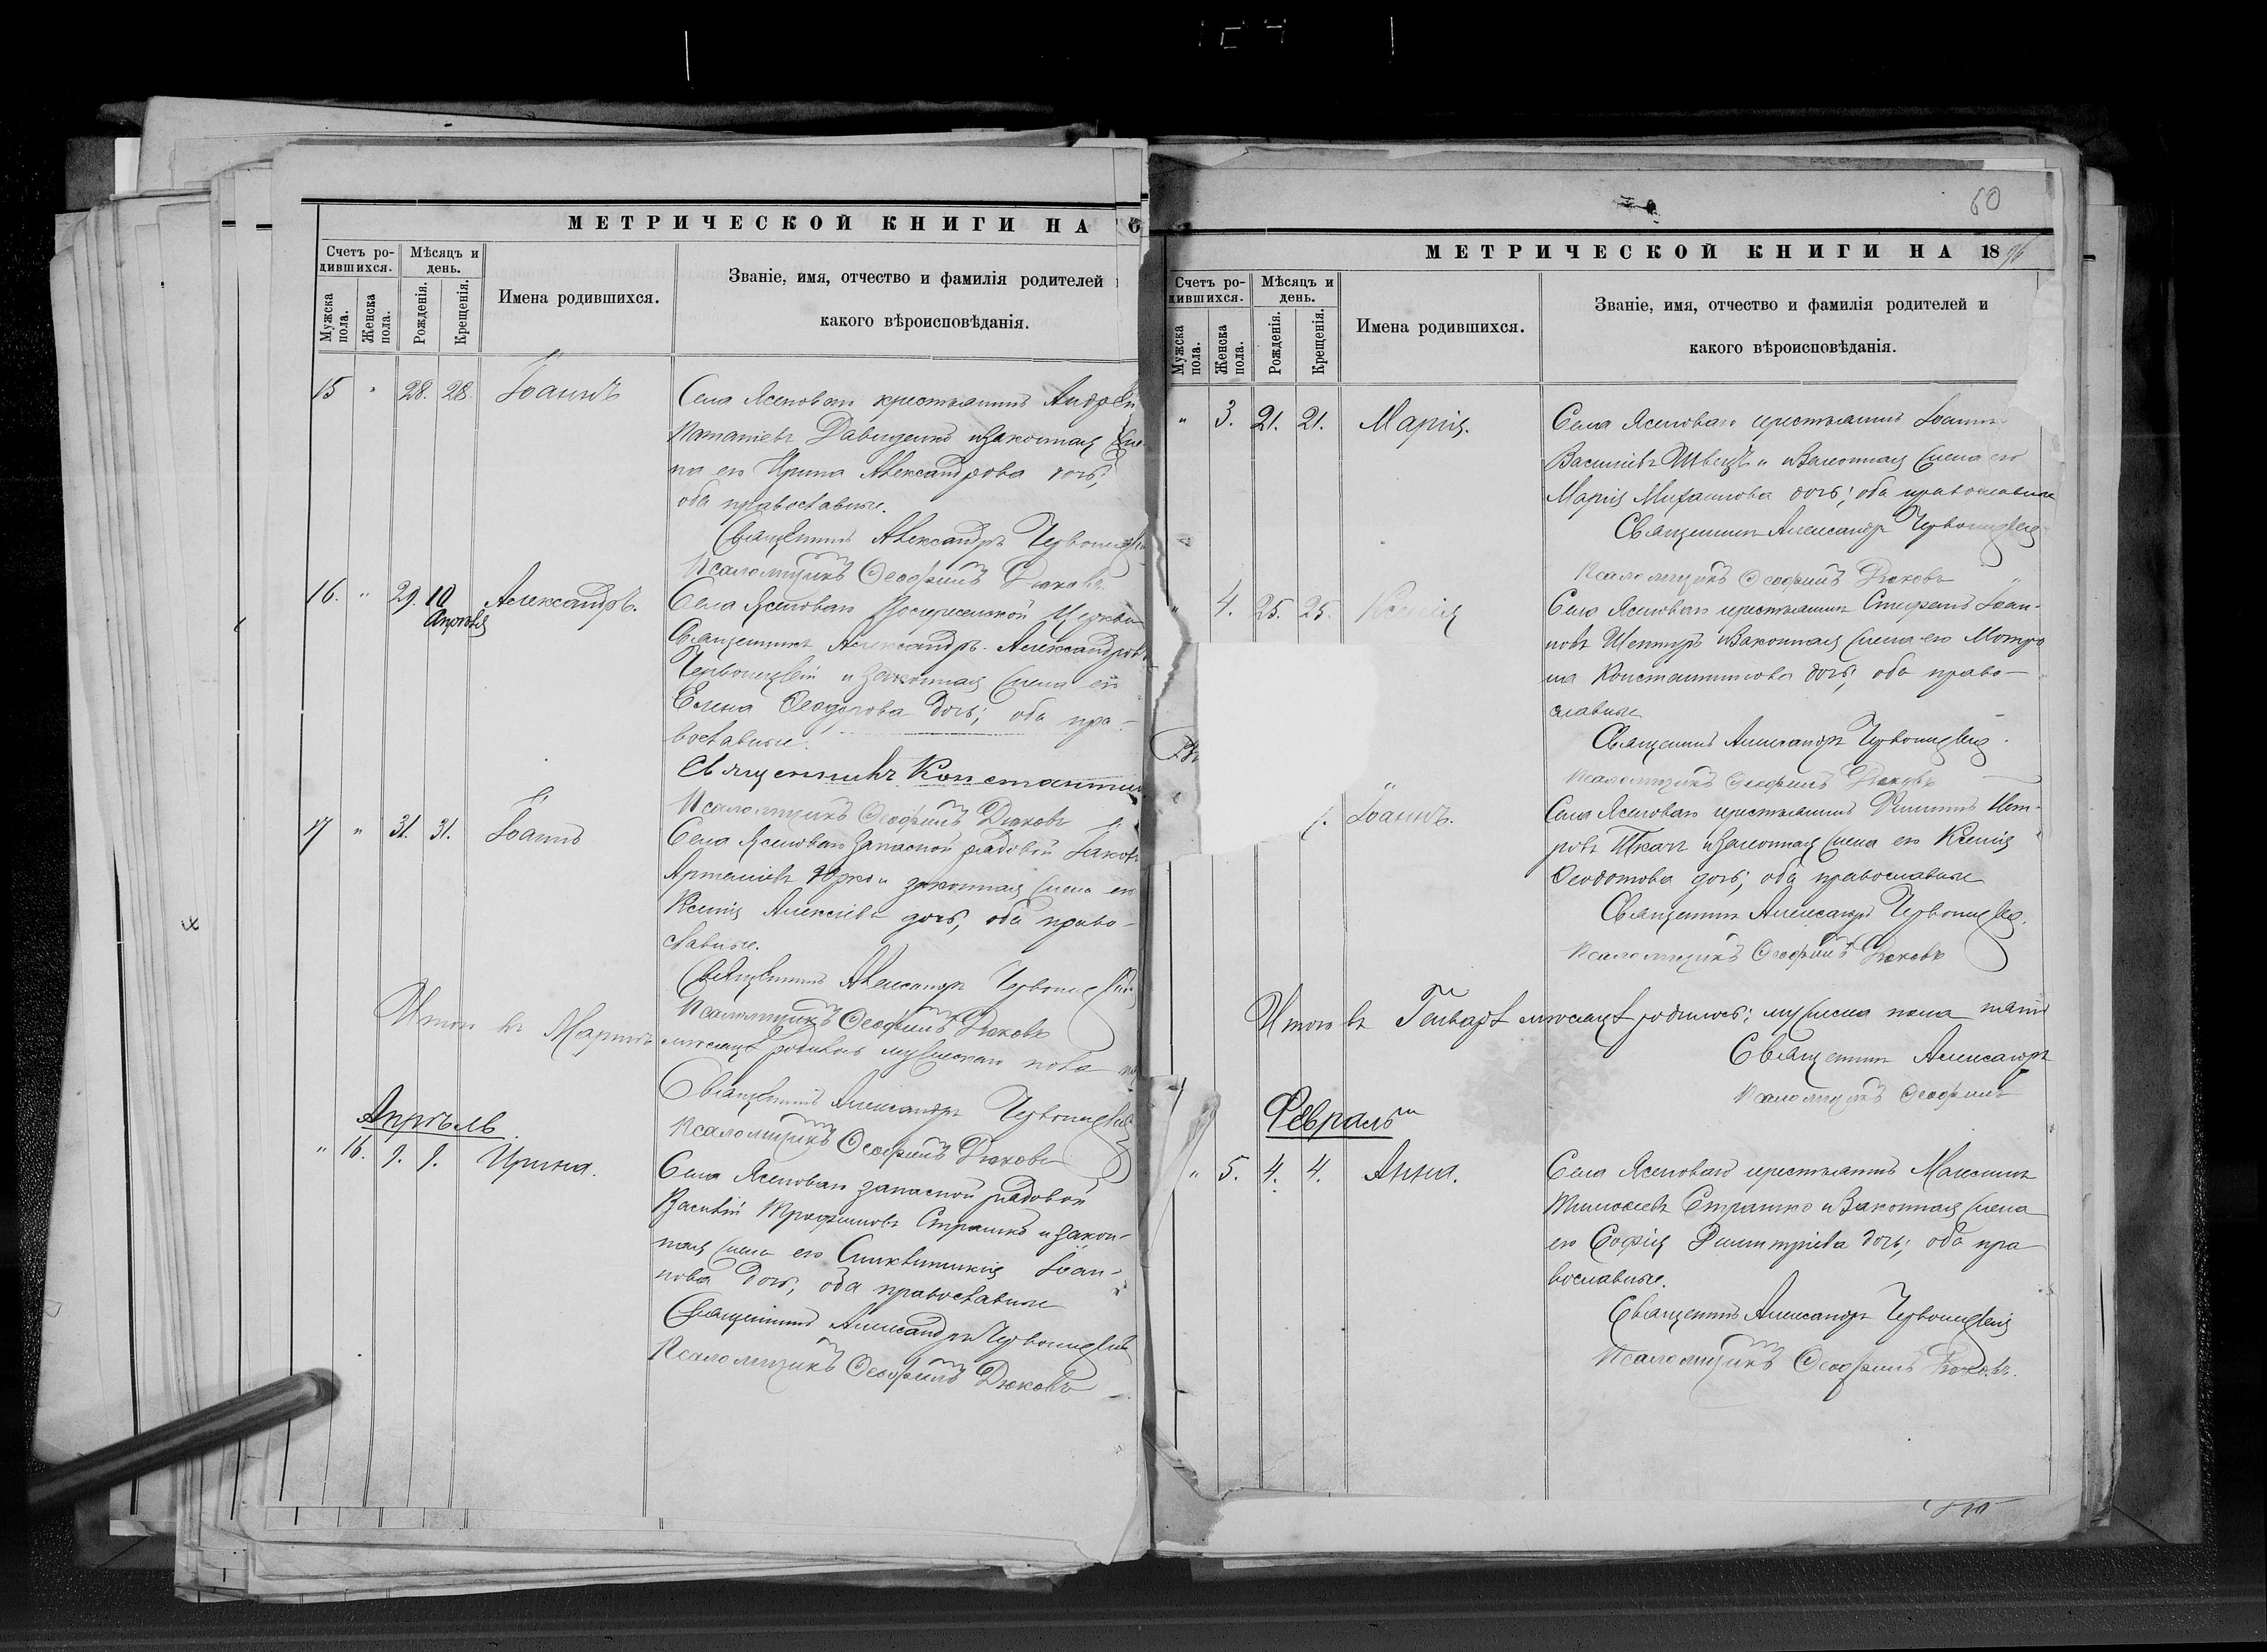 МЕТРИЧЕСКОЙ КНИГИ НА
Счетъ ро-
дившихся.
Мѣсяцъ и
день.
Мужска
пола.
Женска
пола.
Рожденія.
Крещенія.
Имена родившихся.
Званіе, имя, отчество и фамилія родителей
какого вѣроисповѣданія.
15 " 28. 28. Іоаннъ
Села Ясеноваго крестьянинъ Андрей
Давиденко и законная же-
на его Ирина Александрова дочь;
оба православные.
Священникъ Александръ
Псаломщикъ Ѳеофилъ Дюковъ
16. " 29. 10 Александръ.
Апрѣля
Села Ясеноваго Воскресенской Церкви
Священникъ Александръ Александровъ
и законная жена его
Елена Ѳеодорова дочь; оба пра-
вославные.
Священникъ Константин
Псаломщикъ Ѳеофилъ Дюковъ
17 " 31. 31. Іоаннъ
Села Ясеноваго запасной рядовой Іаковъ
Артеміевъ и законная жена его
Ксенія Алексѣева дочь, оба право-
славные.
Священникъ Александръ
Псаломщикъ Ѳеофилъ Дюковъ
Итого въ Мартѣ мѣсяцѣ родилось мужскаго пола
Священникъ Александръ
Псаломщикъ Ѳеофилъ Дюковъ
Апрѣль
" 16. 9. 9. Ирина.
Села Ясеноваго запасной рядовой
Василій Трофимовъ Страшко и закон-
ная жена его Іоан-
нова дочь, оба православные
Священникъ Александръ
Псаломщикъ Ѳеофилъ Дюковъ
60
МЕТРИЧЕСКОЙ КНИГИ НА 1896
Счетъ ро-
дившихся.
Мѣсяцъ и
день.
Мужска
пола.
Женска
пола.
Рожденія.
Крещенія.
Имена родившихся.
Званіе, имя, отчество и фамилія родителей и
какого вѣроисповѣданія.
" 3. 21. 21. Марія.
Села Ясеноваго крестьянинъ Іоаннъ
Василіевъ Швецъ и законная жена его
Марія Михаилова дочь; оба православные
Священникъ Александръ
Псаломщикъ Ѳеофилъ Дюковъ
" 4. 25. 25. Ксенія
Села Ясеноваго крестьянинъ Стефанъ Іоан-
новъ и законная жена его Матро
на Константинова дочь, оба право-
славные
Священникъ Александръ
Псаломщикъ Ѳеофилъ Дюковъ
Іоаннъ.
Села Ясеноваго крестьянинъ Филиппъ Пет-
ровъ Ткачъ и законная жена его Ксенія
Ѳеодотова дочь; оба православные
Священникъ Александръ
Псаломщикъ Ѳеофилъ Дюковъ
Итого въ Генварѣ мѣсяцѣ родилось; мужска пола
Священникъ Александръ
Псаломщикъ Ѳеофилъ
Февраль
" 5. 4. 4. Анна.
Села Ясеноваго крестьянинъ Максимъ
Тимоѳеевъ Страшко и законная жена
его Софія Димитріева дочь; оба пра
вославные.
Священникъ Александръ
Псаломщикъ Ѳеофилъ Дюковъ.